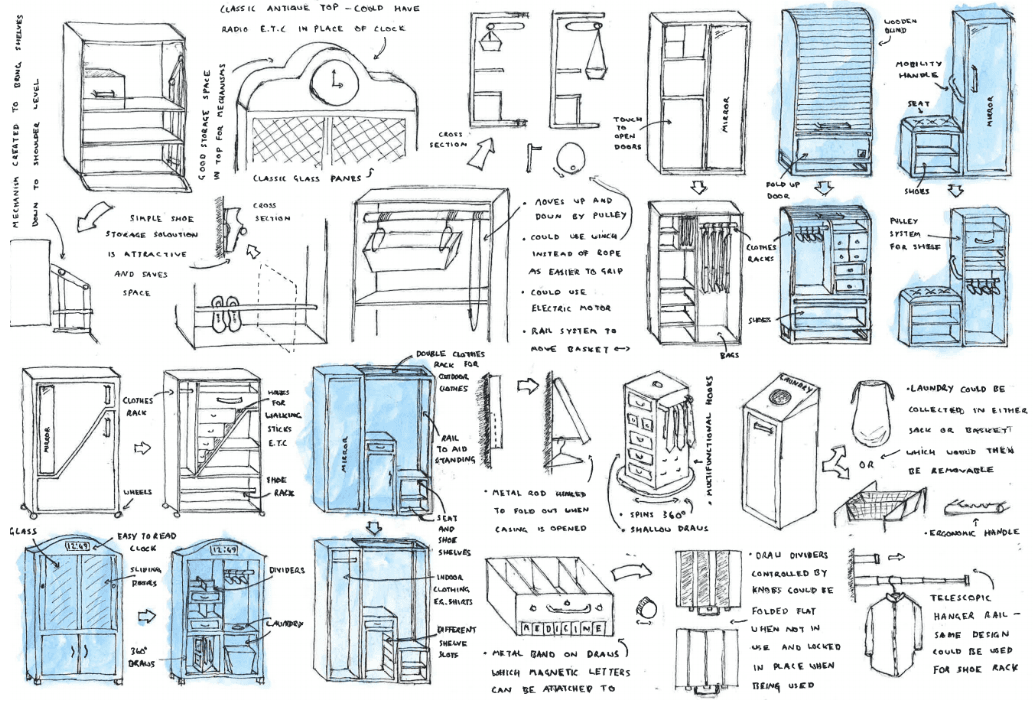 MECHANISM CREATED TO BRING SHELVES
DOWN TO SHOULDER LEVEL
CLASSIC ANTIQUE TOP - COULD HAVE
RADIO E.T.C IN PLACE OF CLOCK
GOOD STORAGE SPACE
IN TOP FOR MECHANISMS
CLASSIC GLASS PANES
CROSS
SECTION
TOUCH
TO
OPEN
DOORS
MIRROR
WOODEN
BLIND
FOLD UP
DOOR
MOBILITY
HANDLE
SEAT
MIRROR
SHOES
SIMPLE SHOE
STORAGE SOLOUTION
IS ATTRACTIVE
AND SAVES
SPACE
CROSS
SECTION
• MOVES UP AND
DOWN BY PULLEY
• COULD USE WINCH
INSTEAD OF ROPE
AS EASIER TO GRIP
• COULD USE
ELECTRIC MOTOR
• RAIL SYSTEM TO
MOVE BASKET ↔
CLOTHES
RACKS
BAGS
SHOES
PULLEY
SYSTEM
FOR SHELF
MIRROR
WHEELS
CLOTHES
RACK
HOOKS
FOR
WALKING
STICKS
E.T.C
SHOE
RACK
DOUBLE CLOTHES
RACK FOR
OUTDOOR
CLOTHES
MIRROR
RAIL
TO AID
STANDING
SEAT
AND
SHOE
SHELVES
• METAL ROD HINGED
TO FOLD OUT WHEN
CASING IS OPENED
• MULTIFUNCTIONAL HOOKS
• SPINS 360°
• SHALLOW DRAWS
LAUNDRY
• LAUNDRY COULD BE
COLLECTED IN EITHER
SACK OR BASKET
WHICH WOULD THEN
BE REMOVABLE
OR
• ERGONOMIC HANDLE
GLASS
EASY TO READ
CLOCK
12:49
SLIDING
DOORS
12:49
DIVIDERS
LAUNDRY
360°
DRAWS
INDOOR
CLOTHING
E.G. SHIRTS
DIFFERENT
SHELVE
SLOTS
MEDICINE
• METAL BAND ON DRAWS
WHICH MAGNETIC LETTERS
CAN BE ATTATCHED TO
• DRAW DIVIDERS
CONTROLLED BY
KNOBS COULD BE
FOLDED FLAT
WHEN NOT IN
USE AND LOCKED
IN PLACE WHEN
BEING USED
TELESCOPIC
HANGER RAIL -
SAME DESIGN
COULD BE USED
FOR SHOE RACK